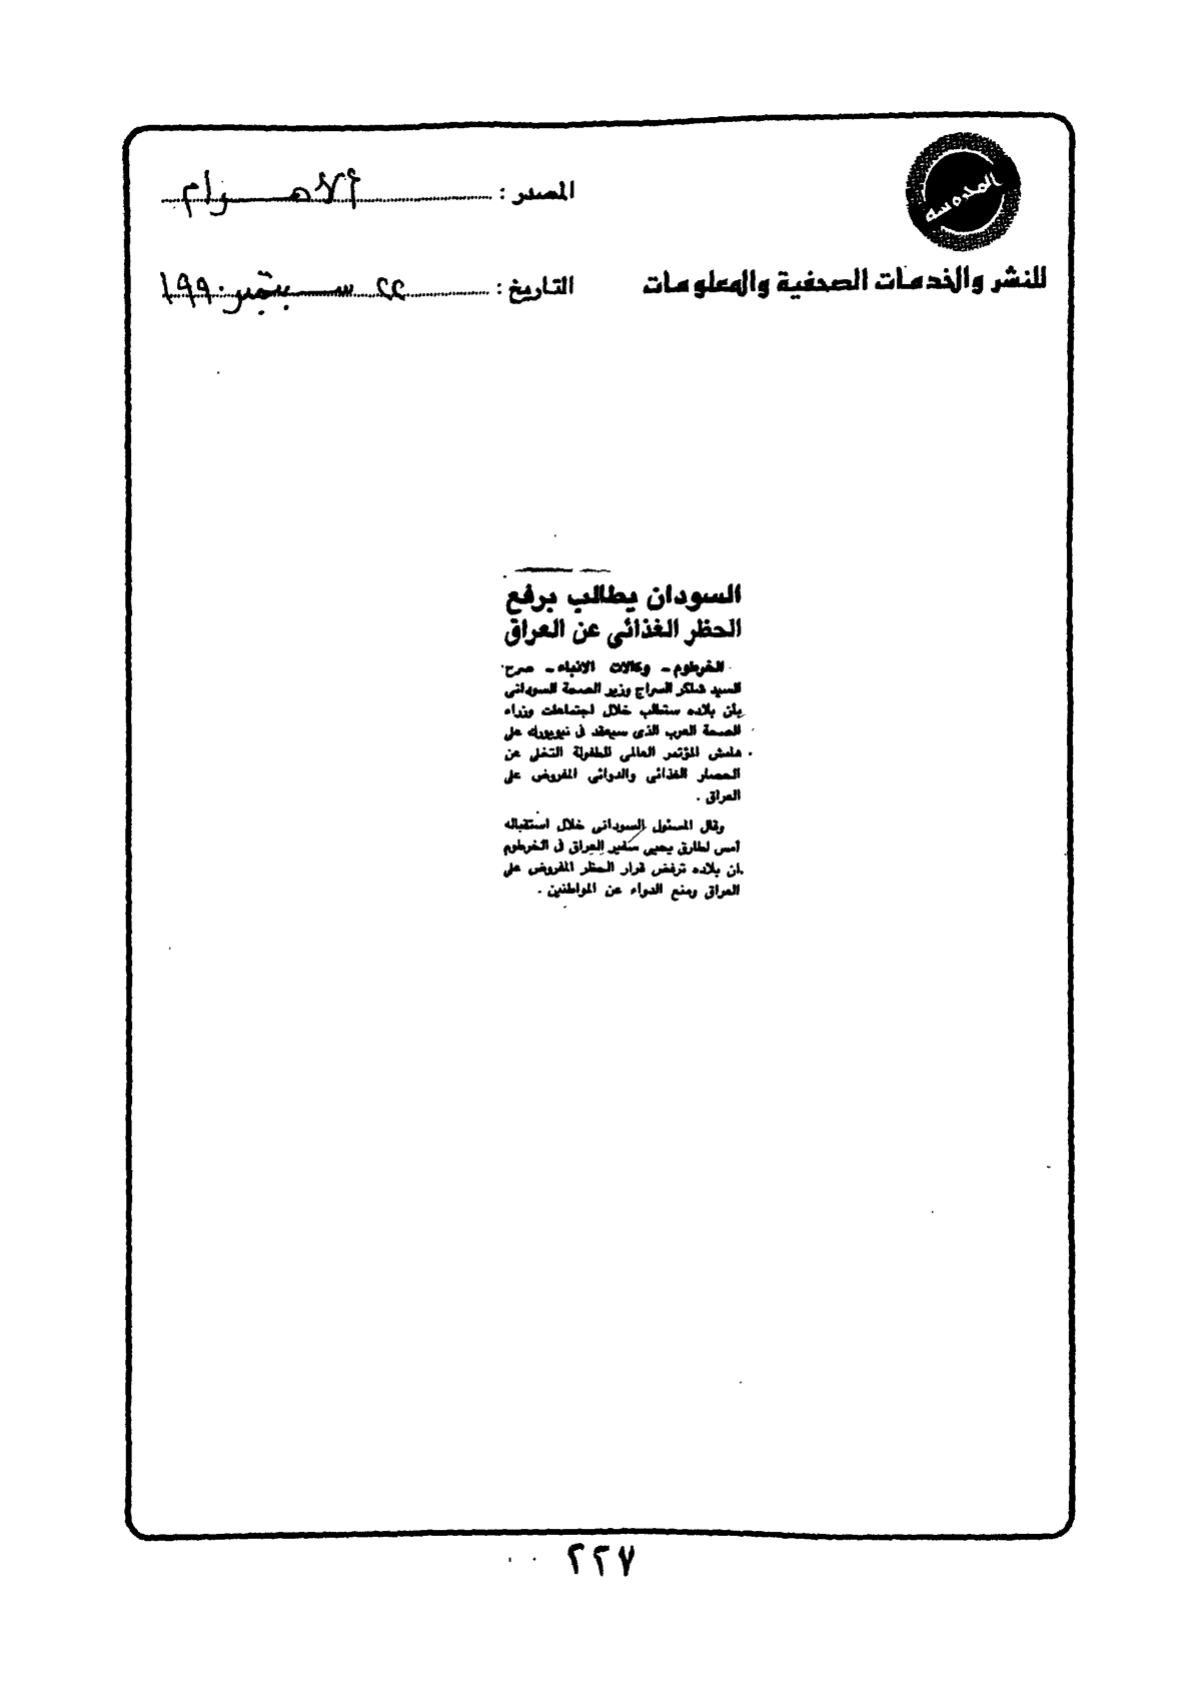 المحروسه
المصدر : الأهرام
للنشر والخدمات الصحفية والمعلومات
التاريخ : ٢٢ سبتمبر ١٩٩٠
السودان يطالب برفع
الحظر الغذائى عن العراق
الخرطوم - وكالات الانباء - صرح
السيد شاكر السراج وزير الصحة السودانى
بأن بلاده ستطلب خلال اجتماعات وزراء
الصحة العرب الذى سيعقد فى نيويورك على
هامش المؤتمر العالمى للطفولة التخلى عن
الحصار الغذائى والدوائى المفروض على
العراق .
وقال المسئول السودانى خلال استقباله
أمس لطارق يحيى سفير العراق فى الخرطوم
ان بلاده ترفض قرار الحظر المفروض على
العراق ومنع الدواء عن المواطنين .
٢٢٧